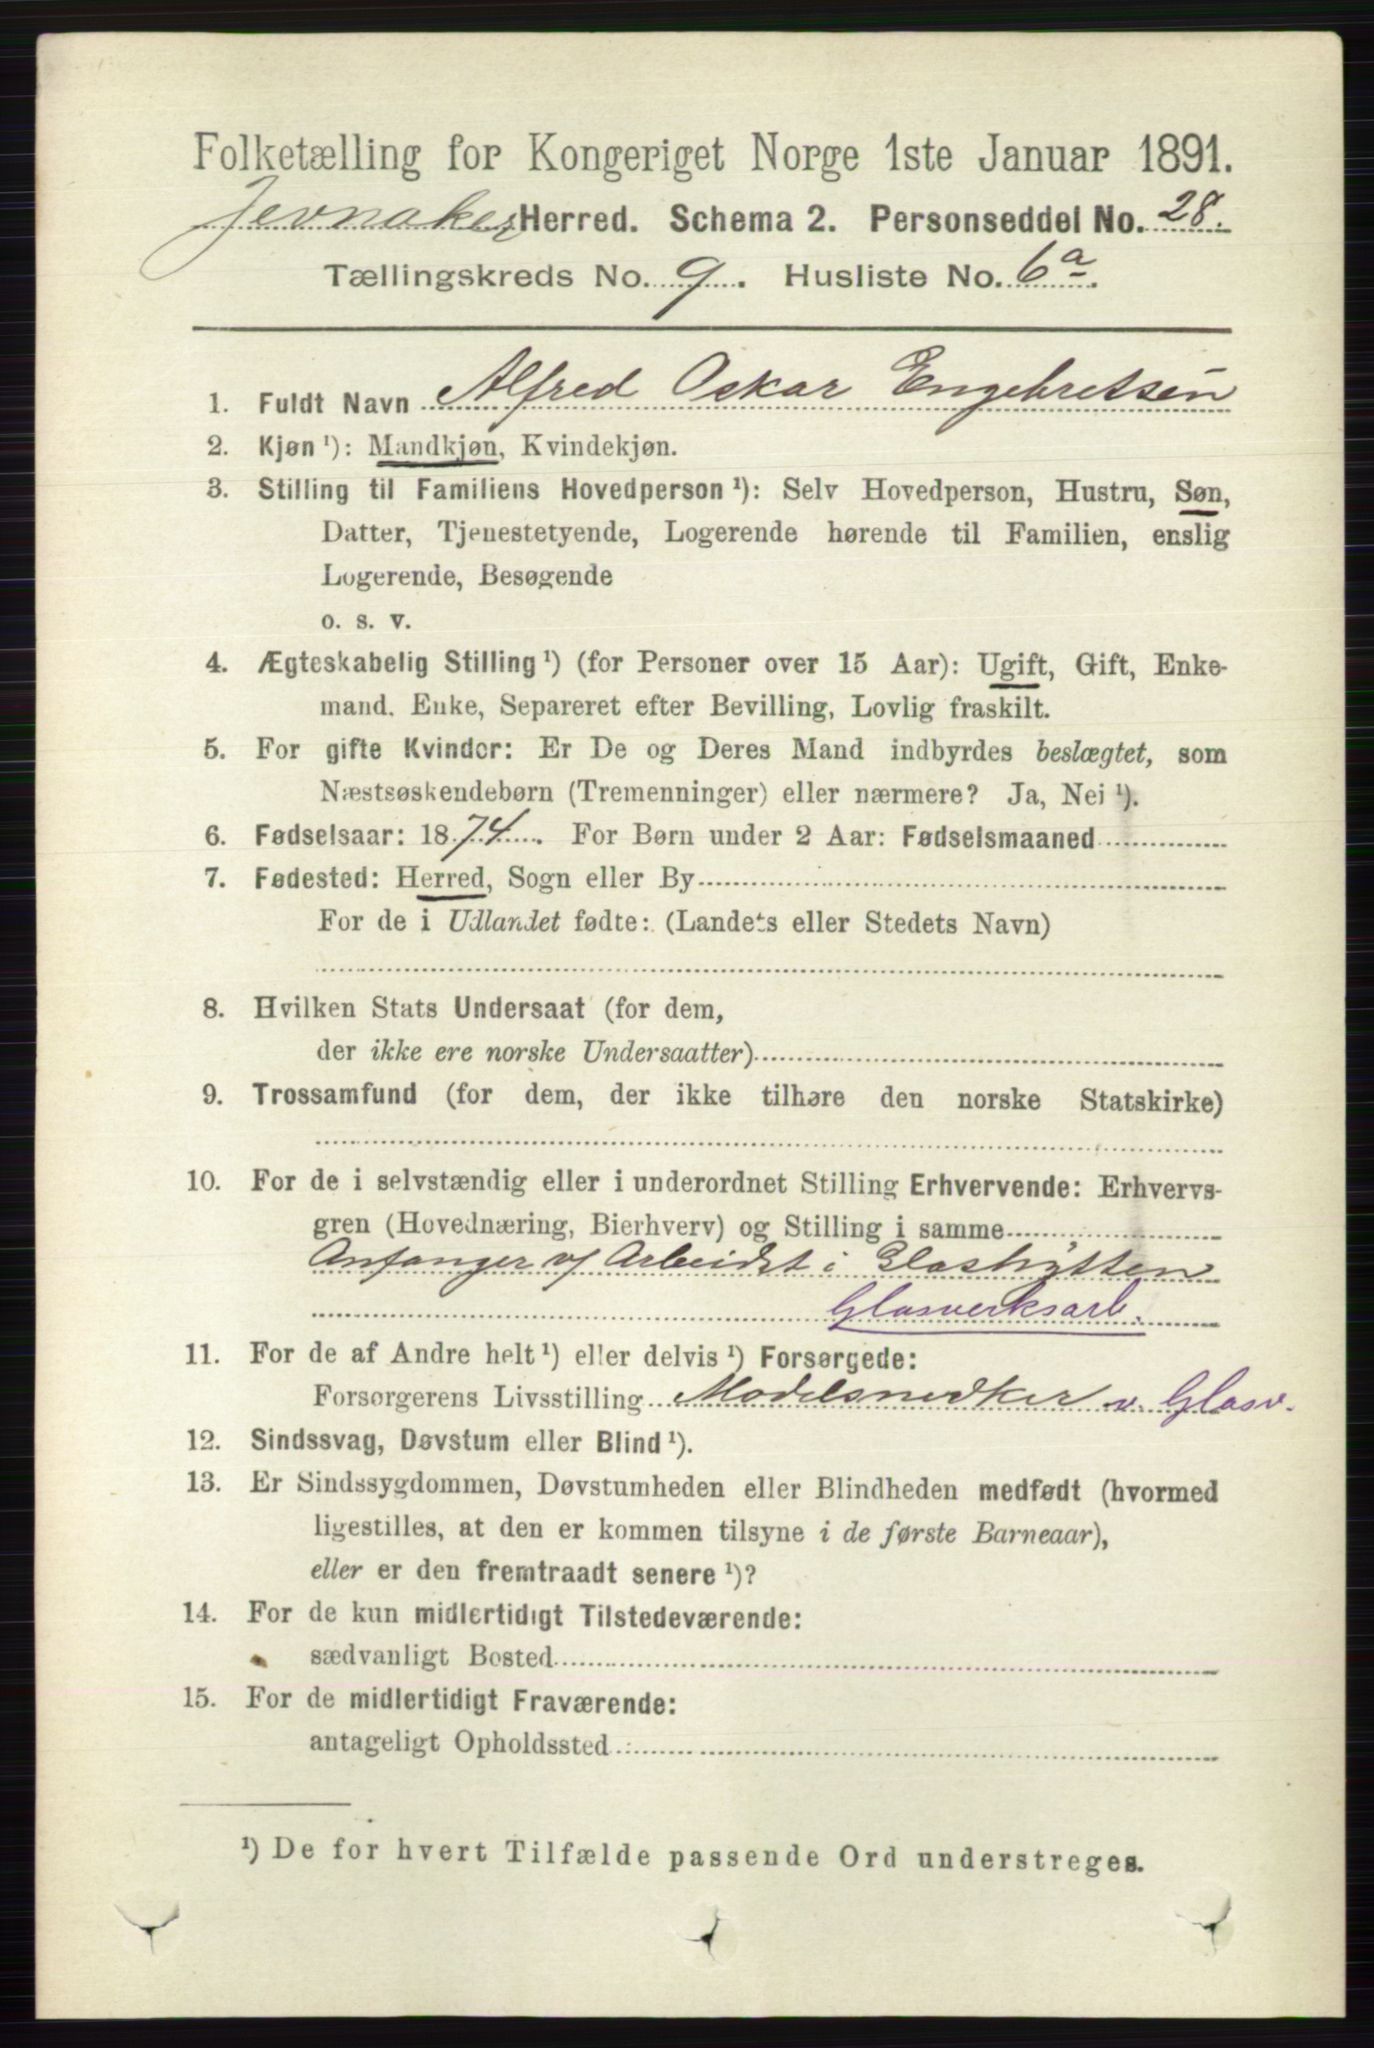 Folketælling for Kongeriget Norge 1ste Januar 1891.
Jevnaker Herred. Schema 2. Personseddel No. 28.
Tællingskreds No. 9. Husliste No. 6a.
1. Fuldt Navn Alfred Oskar Engebretsen
2. Kjøn ¹): Mandkjøn, Kvindekjøn.
3. Stilling til Familiens Hovedperson ¹): Selv Hovedperson, Hustru, Søn,
Datter, Tjenestetyende, Logerende hørende til Familien, enslig
Logerende, Besøgende
o. s. v.
4. Ægteskabelig Stilling ¹) (for Personer over 15 Aar): Ugift, Gift, Enke-
mand. Enke, Separeret efter Bevilling, Lovlig fraskilt.
5. For gifte Kvinder: Er De og Deres Mand indbyrdes beslægtet, som
Næstsøskendebørn (Tremenninger) eller nærmere? Ja, Nei ¹).
6. Fødselsaar: 1874. For Børn under 2 Aar: Fødselsmaaned
7. Fødested: Herred, Sogn eller By
For de i Udlandet fødte: (Landets eller Stedets Navn)
8. Hvilken Stats Undersaat (for dem,
der ikke ere norske Undersaatter)
9. Trossamfund (for dem, der ikke tilhøre den norske Statskirke)
10. For de i selvstændig eller i underordnet Stilling Erhvervende: Erhvervs-
gren (Hovednæring, Bierhverv) og Stilling i samme
Anfanger v/ Arbeidet i Glashytten
Glasverksarb.
11. For de af Andre helt ¹) eller delvis ¹) Forsørgede:
Forsørgerens Livsstilling Modelsnedker v. Glasv.
12. Sindssvag, Døvstum eller Blind ¹).
13. Er Sindssygdommen, Døvstumheden eller Blindheden medfødt (hvormed
ligestilles, at den er kommen tilsyne i de første Barneaar),
eller er den fremtraadt senere ¹)?
14. For de kun midlertidigt Tilstedeværende:
sædvanligt Bosted
15. For de midlertidigt Fraværende:
antageligt Opholdssted
¹) De for hvert Tilfælde passende Ord understreges.